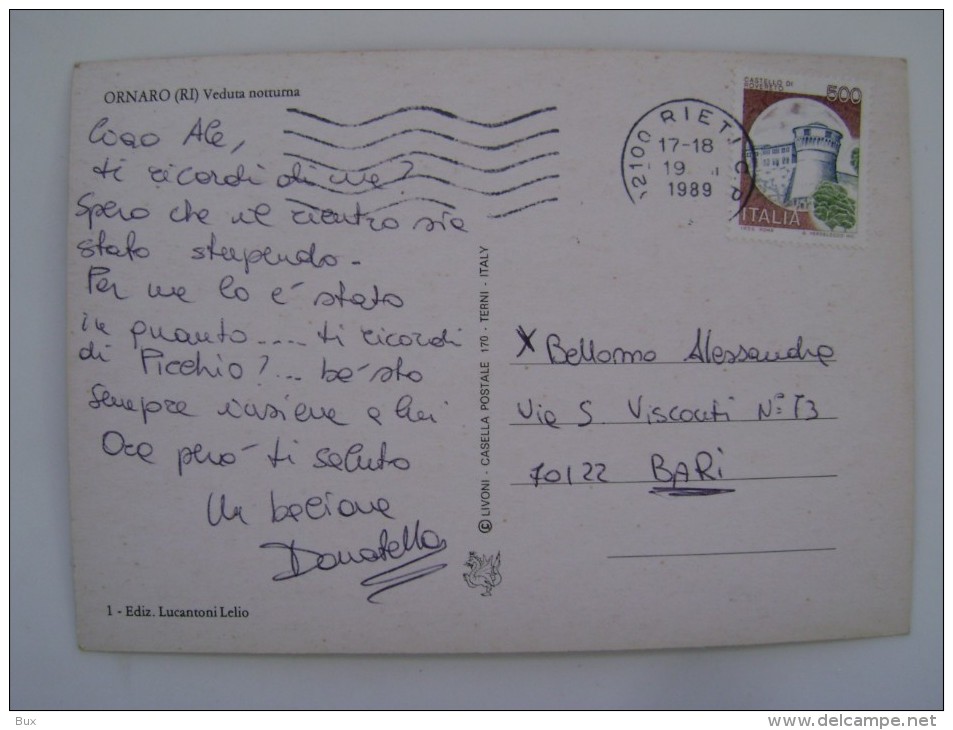 ORNARO (RI) Veduta notturna
Ciao Ale,
ti ricordi di me?
Spero che il rientro sia
stato stupendo -
Per me lo è stato
in quanto..... ti ricordi
di Picchio?... be' sto
sempre insieme a lui
Ora però ti saluto
Un bacione
Donatella
1 - Ediz. Lucantoni Lelio
© LIVONI - CASELLA POSTALE 170 - TERNI - ITALY
12100 RIETI C.P.
17-18
19
1989
CASTELLO DI
ROVERETO
500
ITALIA
X Bellomo Alessandra
Via S. Visconti N° 13
70122 BARI
Bux
delcampe.net